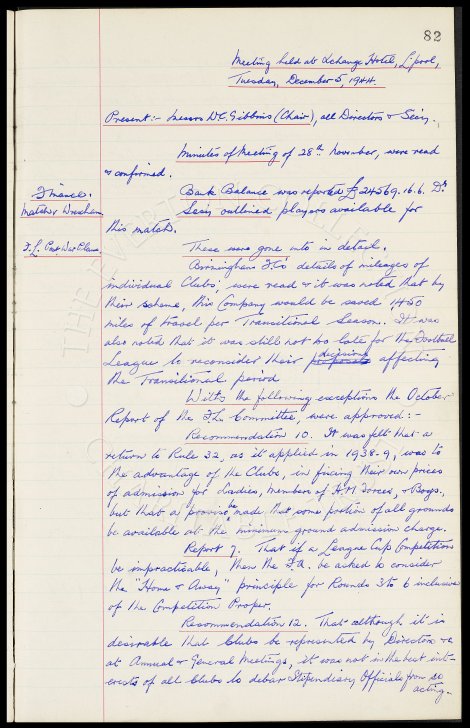 82
Meeting held at Exchange Hotel, L'pool,
Tuesday, December 5, 1944.
Present:- Messrs W.C. Gibbins (Chair), all Directors & Secy.
Minutes of Meeting of 28th November, were read
& confirmed.
Finance.
Bank Balance was reported £24569.16.6. Dr
Matches Wrexham
Secy outlined players available for
this match.
F.L. Post War Plans.
These were gone into in detail.
Birmingham F.C's details of mileages of
individual Clubs, were read & it was noted that by
their scheme, this Company would be saved 1450
miles of travel per Transitional Season. It was
also noted that it was still not too late for the Football
League to reconsider their proposals decisions affecting
the Transitional period
With the following exceptions the October
Report of the F.L. Committee, were approved:-
Recommendation 10. It was felt that a
return to Rule 32, as it applied in 1938-9, was to
the advantage of the Clubs, in fixing their own prices
of admission for Ladies, members of H.M Forces, & Boys,
but that a proviso be made that some portion of all grounds
be available at the minimum ground admission charge.
Report 7. That if a League Cup Competition
be impracticable, then the F.A. be asked to consider
the "Home & Away" principle for Rounds 3 to 6 inclusive
of the Competition Proper.
Recommendation 12. That although it is
desirable that Clubs be represented by Directors
at Annual & General Meetings, it was not in the best int-
erests of all Clubs to debar Stipendiary Officials from so
acting.
THE EVERTON